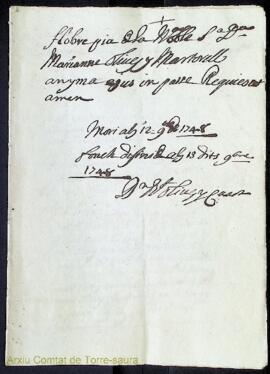 +
Llobre pia de la Noble Sa Da
Marianne Olives y Martorell
anyma ejus in pace Requiescat
amen
Mori als 12 9bre 1748
fonch als 13 dits 9bre
1748
Da Olives y
Arxiu Comtat de Torre-saura